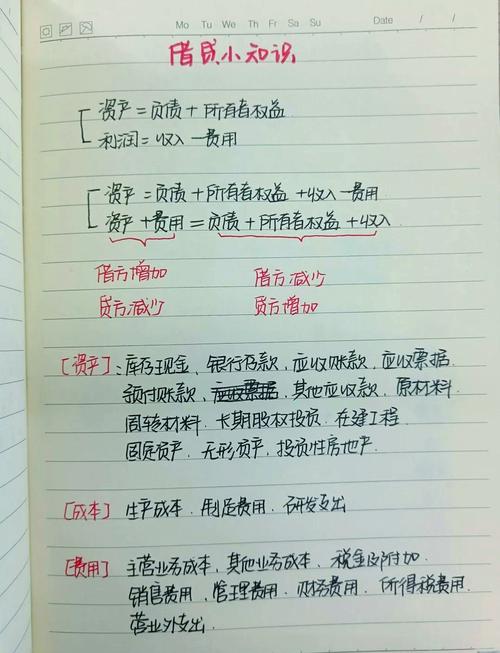 Mo Tu We Th Fr Sa Su Date / /
借贷小知识
资产=负债+所有者权益
利润=收入-费用
资产=负债+所有者权益+收入-费用
资产+费用=负债+所有者权益+收入
借方增加 借方减少
贷方减少 贷方增加
[资产]:库存现金、银行存款、应收账款、应收票据
预付账款、应收票据、其他应收款、原材料
周转材料、长期股权投资、在建工程
固定资产、无形资产、投资性房地产
[成本] 生产成本、制造费用、研发支出
[费用] 主营业务成本、其他业务成本、税金及附加
销售费用、管理费用、财务费用、所得税费用
营业外支出.